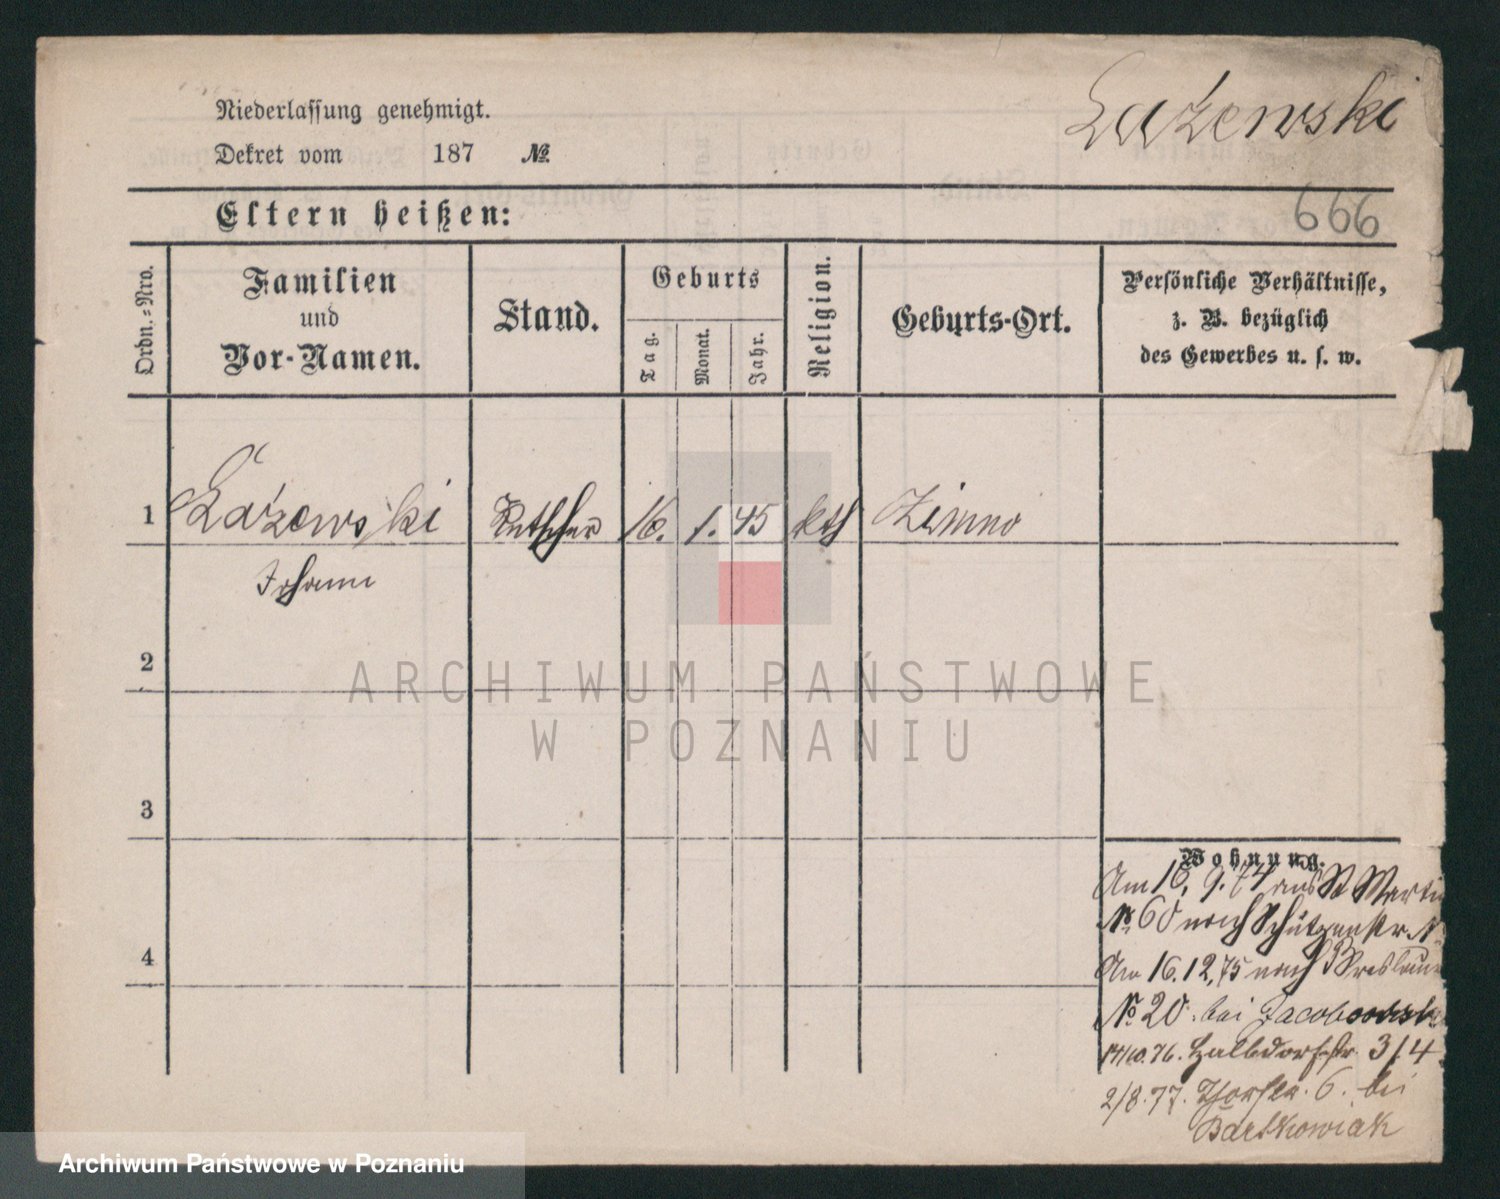 Niederlassung genehmigt.
Dekret vom 187 №
Łażewski
666
Eltern heißen:
Ordn.=Nro.
Familien
und
Vor-Namen.
Stand.
Geburts
Tag.
Monat.
Jahr.
Religion.
Geburts-Ort.
Persönliche Verhältnisse,
z. B. bezüglich
des Gewerbes u. s. w.
1 Łażewski Kutscher 16. 1. 45 kth Zimno
Johann
2
ARCHIWUM PAŃSTWOWE
W POZNANIU
3
4
Wohnung.
Am 16. 9. 74 aus St Martin
№ 60 nach Schützenstr. №
Am 16. 12. 75 nach Breslauer
№ 20. bei Jacobowski
14/10. 76. Halbdorfstr. 3/4
2/8. 77. Thorstr. 6. bei
Bartkowiak
Archiwum Państwowe w Poznaniu